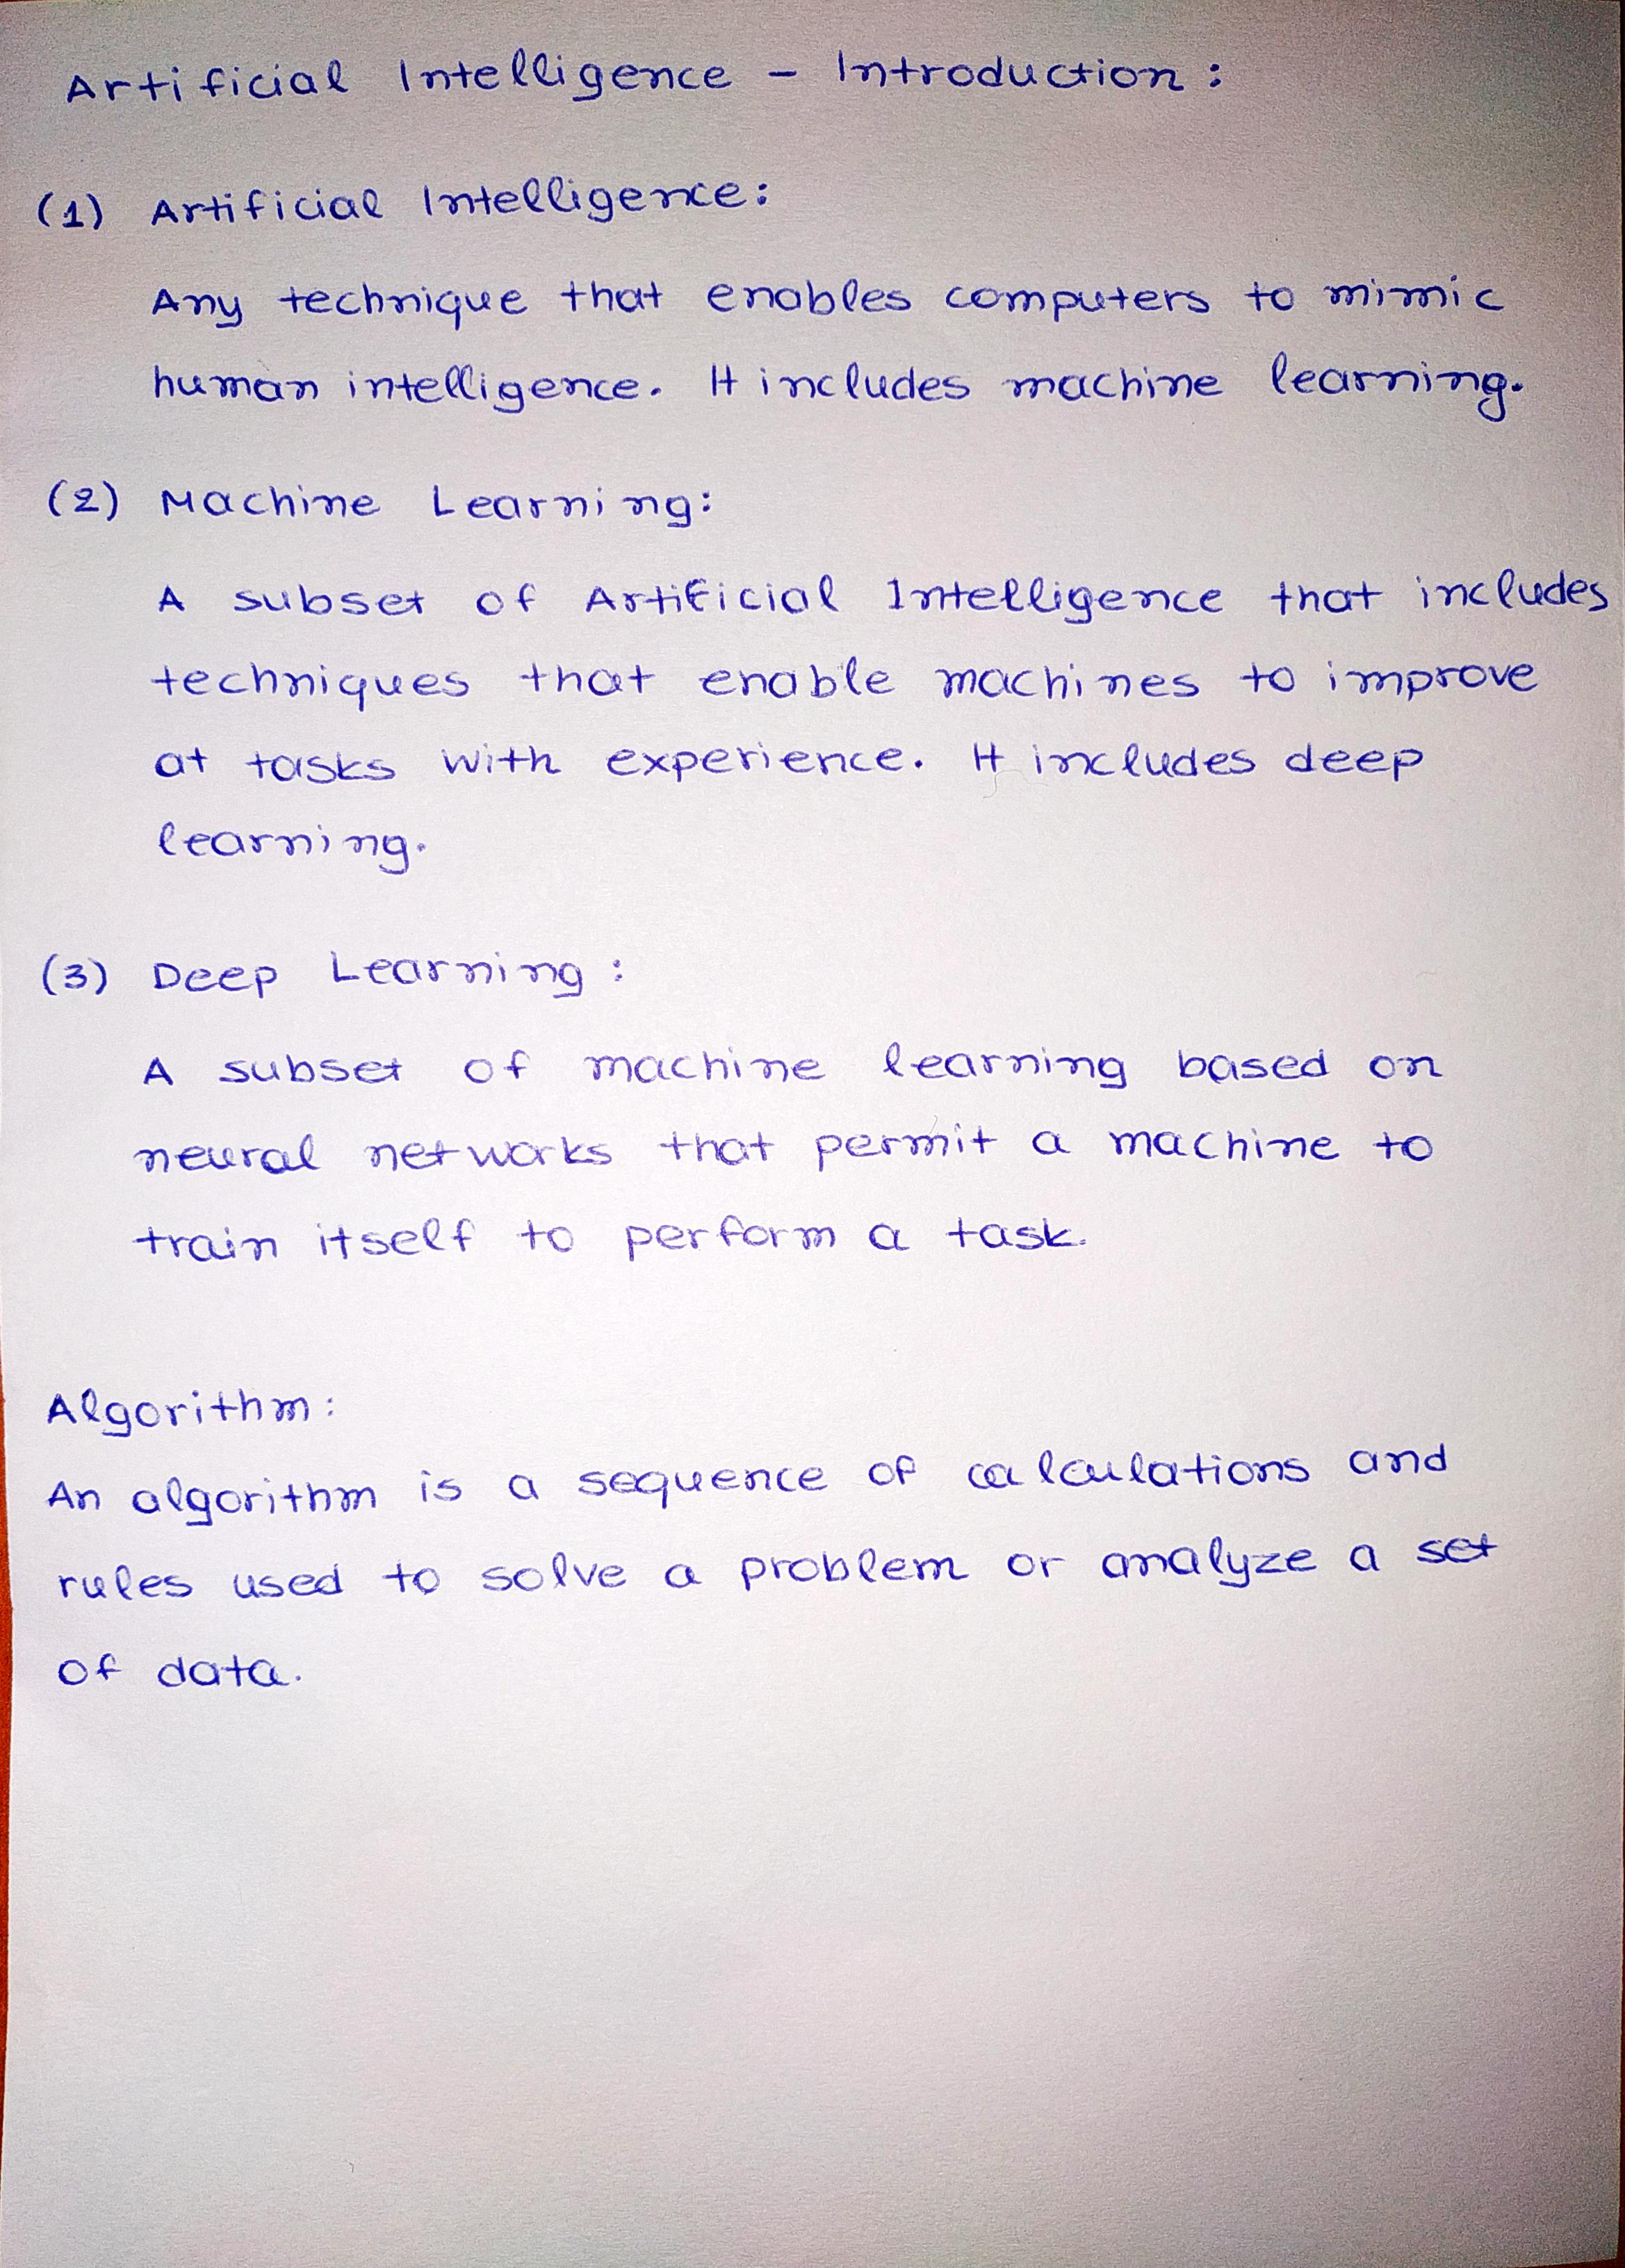 Artificial Intelligence - Introduction:
(1) Artificial Intelligence:
Any technique that enables computers to mimic
human intelligence. It includes machine learning.
(2) Machine Learning:
A subset of Artificial Intelligence that includes
techniques that enable machines to improve
at tasks with experience. It includes deep
learning.
(3) Deep Learning:
A subset of machine learning based on
neural networks that permit a machine to
train itself to perform a task.
Algorithm:
An algorithm is a sequence of calculations and
rules used to solve a problem or analyze a set
of data.